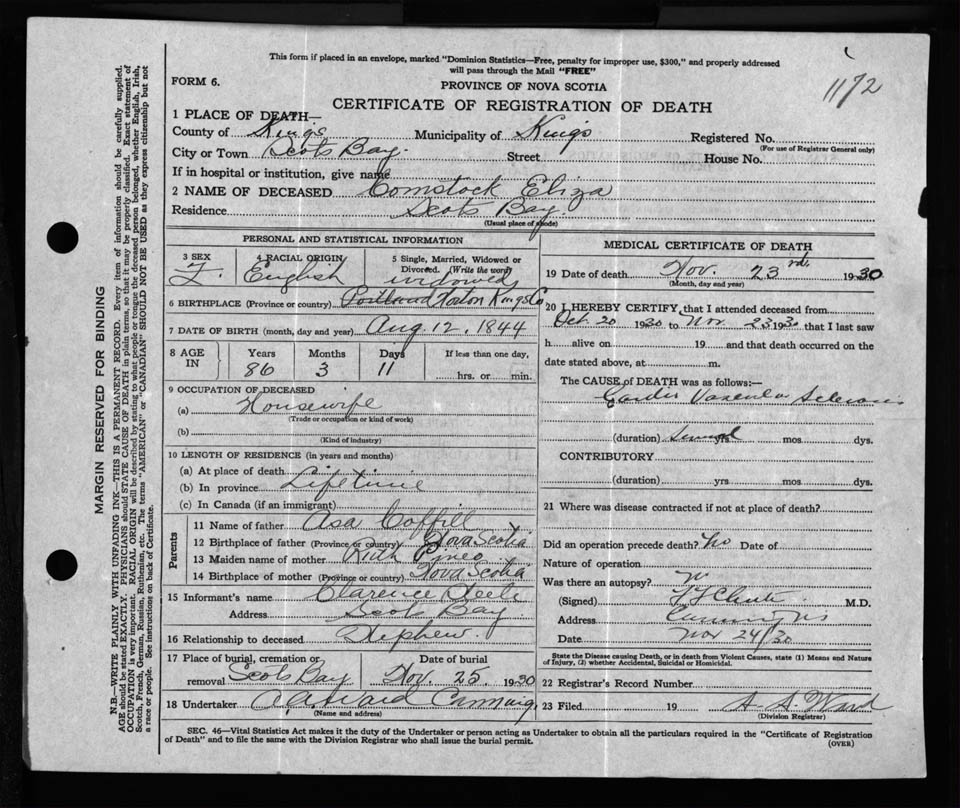 This form if placed in an envelope, marked "Dominion Statistics—Free, penalty for improper use, $300," and properly addressed
will pass through the Mail "FREE"
1172
FORM 6.
PROVINCE OF NOVA SCOTIA
CERTIFICATE OF REGISTRATION OF DEATH
1 PLACE OF DEATH—
County of Kings Municipality of Kings Registered No.
(For use of Registrar General only)
City or Town Scots Bay. Street House No.
If in hospital or institution, give name
2 NAME OF DECEASED Comstock Eliza
Residence Scots Bay.
(Usual place of abode)
PERSONAL AND STATISTICAL INFORMATION
3 SEX 4 RACIAL ORIGIN 5 Single, Married, Widowed or
Divorced. (Write the word)
F. English widowed
6 BIRTHPLACE (Province or country) Kings Co
7 DATE OF BIRTH (month, day and year) Aug. 12, 1844
8 AGE IN Years Months Days If less than one day,
86 3 11 hrs. or min.
9 OCCUPATION OF DECEASED
(a) Housewife
(Trade or occupation or kind of work)
(b)
(Kind of industry)
10 LENGTH OF RESIDENCE (in years and months)
(a) At place of death
(b) In province Lifetime
(c) In Canada (if an immigrant)
Parents
11 Name of father Asa Coffill
12 Birthplace of father (Province or country) Nova Scotia
13 Maiden name of mother Ruth Pineo
14 Birthplace of mother (Province or country) Nova Scotia
15 Informant's name Clarence Steele
Address Scots Bay
16 Relationship to deceased Nephew.
17 Place of burial, cremation or removal Scots Bay Date of burial Nov. 25, 1930
18 Undertaker
(Name and address)
MEDICAL CERTIFICATE OF DEATH
19 Date of death Nov. 23rd. 1930
(Month, day and year)
20 I HEREBY CERTIFY, that I attended deceased from
Oct. 20 1930 to Nov. 23 1930 that I last saw
h alive on 19 and that death occurred on the
date stated above, at m.
The CAUSE of DEATH was as follows:—
Cardio Vascular Sclerosis
(duration) Several yrs mos. dys.
CONTRIBUTORY
(duration) yrs mos dys.
21 Where was disease contracted if not at place of death?
Did an operation precede death? No Date of
Nature of operation
Was there an autopsy? No
(Signed) M.D.
Address Canning NS
Date Nov 24/30
State the Disease causing Death, or in death from Violent Causes, state (1) Means and Nature
of Injury, (2) whether Accidental, Suicidal or Homicidal.
22 Registrar's Record Number
23 Filed 19 Ward
(Division Registrar)
SEC. 46—Vital Statistics Act makes it the duty of the Undertaker or person acting as Undertaker to obtain all the particulars required in the "Certificate of Registration
of Death" and to file the same with the Division Registrar who shall issue the burial permit.
(OVER)
MARGIN RESERVED FOR BINDING
N.B.—WRITE PLAINLY WITH UNFADING INK—THIS IS A PERMANENT RECORD. Every item of information should be carefully supplied.
AGE should be stated EXACTLY. PHYSICIANS should STATE CAUSE OF DEATH in plain terms, so that it may be properly classified. Exact statement of
OCCUPATION is very important. RACIAL ORIGIN will be described by stating to what people or tongue the deceased person belonged, whether English, Irish,
Scotch, French, German, Russian, Ruthenian, etc. The terms "AMERICAN" or "CANADIAN" SHOULD NOT BE USED as they express citizenship but not
a race or people. See instructions on back of Certificate.